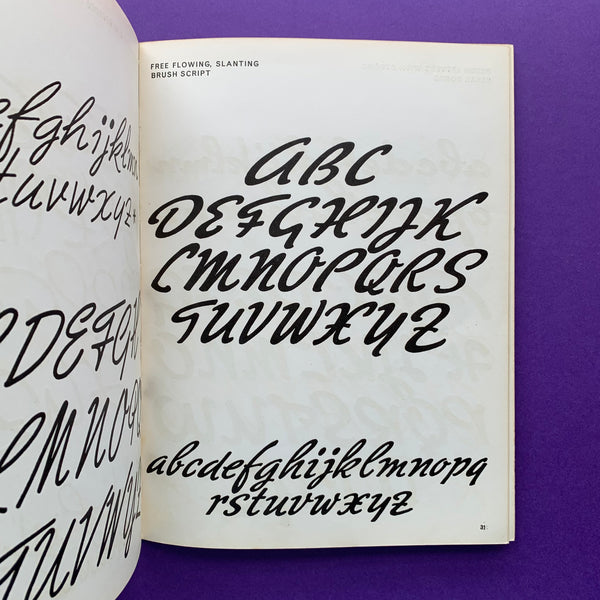 efghijklm
tuvwxyz
DEFGH
LMNOP
TUVW
FREE FLOWING, SLANTING
BRUSH SCRIPT
ABC
DEFGHIJK
LMNOPQRS
TUVWXYZ
abcdefghijklmnopq
rstuvwxyz
31